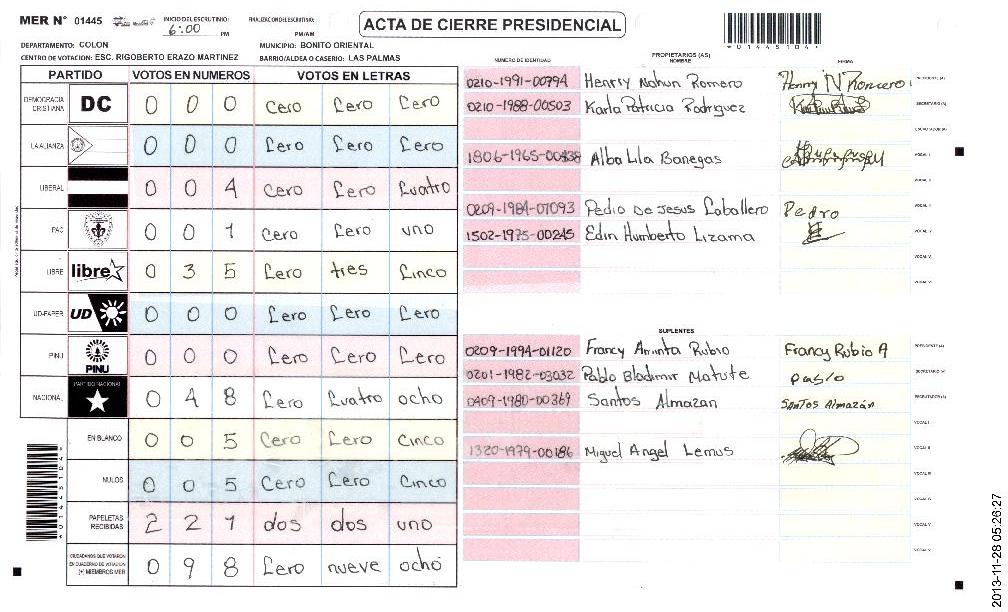 MER N° 01445
INICIO DEL ESCRUTINIO: 6:00 PM
FINALIZACION DEL ESCRUTINIO: PM/AM
ACTA DE CIERRE PRESIDENCIAL
01445104
DEPARTAMENTO: COLON
MUNICIPIO: BONITO ORIENTAL
CENTRO DE VOTACION: ESC. RIGOBERTO ERAZO MARTINEZ
BARRIO/ALDEA O CASERIO: LAS PALMAS
PARTIDO VOTOS EN NUMEROS VOTOS EN LETRAS
DEMOCRACIA CRISTIANA DC 0 0 0 Cero Cero Cero
LA ALIANZA 0 0 0 Cero Cero Cero
LIBERAL 0 0 4 Cero Cero Cuatro
PAC 0 0 1 Cero Cero uno
LIBRE libre 0 3 5 Cero tres Cinco
UD-FAPER UD 0 0 0 Cero Cero Cero
PINU PINU 0 0 0 Cero Cero Cero
NACIONAL PARTIDO NACIONAL 0 4 8 Cero Cuatro ocho
EN BLANCO 0 0 5 Cero Cero Cinco
NULOS 0 0 5 Cero Cero Cinco
PAPELETAS RECIBIDAS 2 2 1 dos dos uno
CIUDADANOS QUE VOTARON EN CUADERNO DE VOTACION (+) MIEMBROS MER 0 9 8 Cero nueve ocho
PROPIETARIOS (AS)
NUMERO DE IDENTIDAD NOMBRE FIRMA
0210-1991-00794 Henrry Nahun Romero Henrry N Romero PRESIDENTE (A)
0210-1988-00503 Karla Patricia Rodriguez SECRETARIO (A)
ESCRUTADOR (A)
1806-1965-00438 Alba Lila Banegas VOCAL I
VOCAL II
0209-1984-01093 Pedro De Jesus Caballero Pedro VOCAL III
1502-1975-00245 Edin Humberto Lizama VOCAL IV
VOCAL V
VOCAL VI
SUPLENTES
0209-1994-01120 Francy Aminta Rubio Francy Rubio A PRESIDENTE (A)
0201-1982-03032 Pablo Bladimir Matute pablo SECRETARIO (A)
0409-1980-00369 Santos Almazan Santos Almazán ESCRUTADOR (A)
VOCAL I
1320-1979-00186 Miguel Angel Lemus VOCAL II
VOCAL III
VOCAL IV
VOCAL V
VOCAL VI
2013-11-28 05:26:27